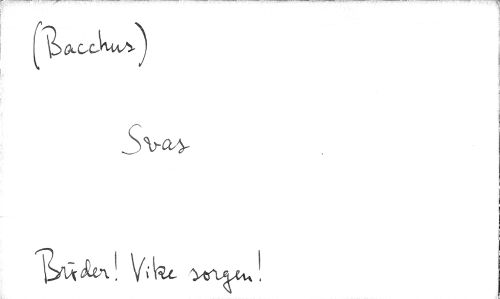 (Bacchus)
Svas
Bröder! Vike sorgen!